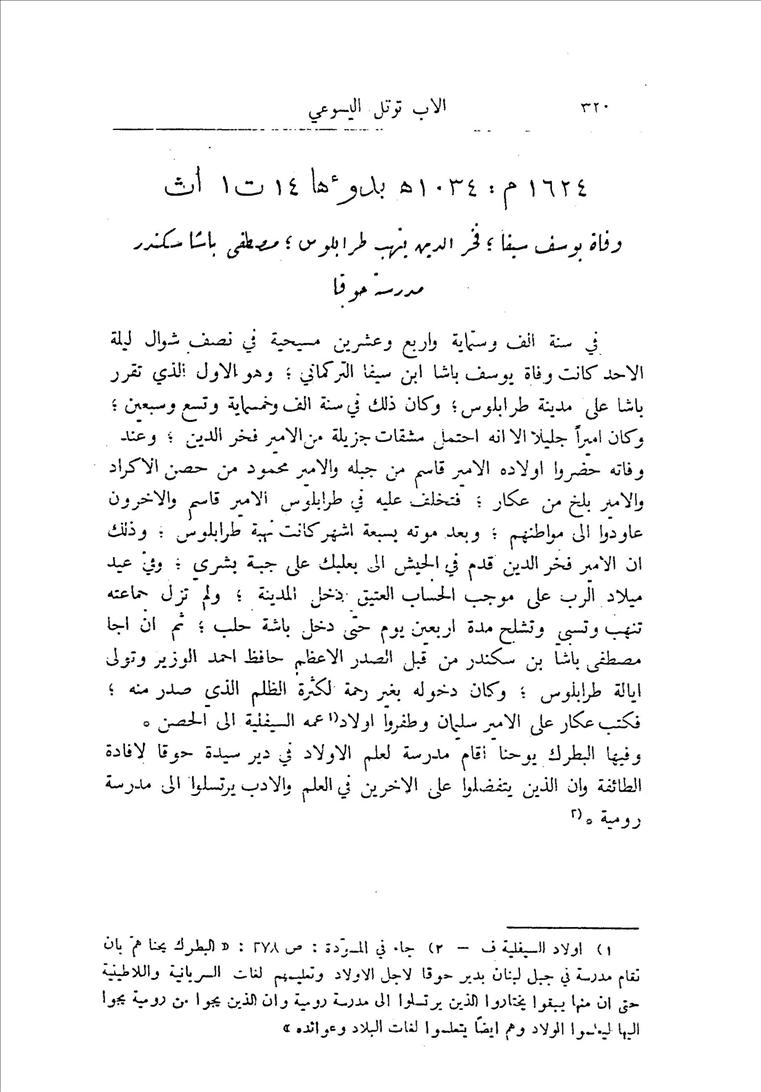 ٣٢٠
الاب توتل اليسوعي
١٦٢٤ م : ١٠٣٤ ه بدوءها ١٤ ت ١ اث
وفاة يوسف سيفا ؛ فخر الدين ينهب طرابلوس ؛ مصطفى باشا سكندر
مدرسة حوقا
في سنة الف وستماية واربع وعشرين مسيحية في نصف شوال ليلة
الاحد كانت وفاة يوسف باشا ابن سيفا التركماني ؛ وهو الاول الذي تقرر
باشا على مدينة طرابلوس ؛ وكان ذلك في سنة الف وخمسماية وتسع وسبعين ؛
وكان اميراً جليلا الا انه احتمل مشقات جزيلة من الامير فخر الدين ؛ وعند
وفاته حضروا اولاده الامير قاسم من جبله والامير محمود من حصن الاكراد
والامير بلخ من عكار ؛ فتخلف عليه في طرابلوس الامير قاسم والاخرون
عاودوا الى مواطنهم ؛ وبعد موته بسبعة اشهر كانت نهبة طرابلوس ؛ وذلك
ان الامير فخر الدين قدم في الجيش الى بعلبك على جبة بشري ؛ وفي عيد
ميلاد الرب على موجب الحساب العتيق دخل المدينة ؛ ولم تزل جماعته
تنهب وتسبي وتشلح مدة اربعين يوم حتى دخل باشة حلب ؛ ثم ان اجا
مصطفى باشا بن سكندر من قبل الصدر الاعظم حافظ احمد الوزير وتولى
ايالة طرابلوس ؛ وكان دخوله بغير رحمة لكثرة الظلم الذي صدر منه ؛
فكتب عكار على الامير سليمان وطفروا اولاد١) عمه السيفلية الى الحصن ٥
وفيها البطرك يوحنا أقام مدرسة لعلم الاولاد في دير سيدة حوقا لافادة
الطائفة وان الذين يتفضلوا على الاخرين في العلم والادب يرتسلوا الى مدرسة
رومية ٥ ٢)
١) اولاد السيفلية ف — ٢) جاء في المسوّدة : ص ٢٧٨ : « البطرك يحنا همّ بان
تقام مدرسة في جبل لبنان بدير حوقا لاجل الاولاد وتعليمهم لغات السريانية واللاطينية
حتى ان منها يبقوا يختاروا الذين يرتسلوا الى مدرسة رومية وان الذين يجوا من رومية يجوا
اليها ليعلموا الولاد وهم ايضاً يتعلموا لغات البلاد وعوائده »